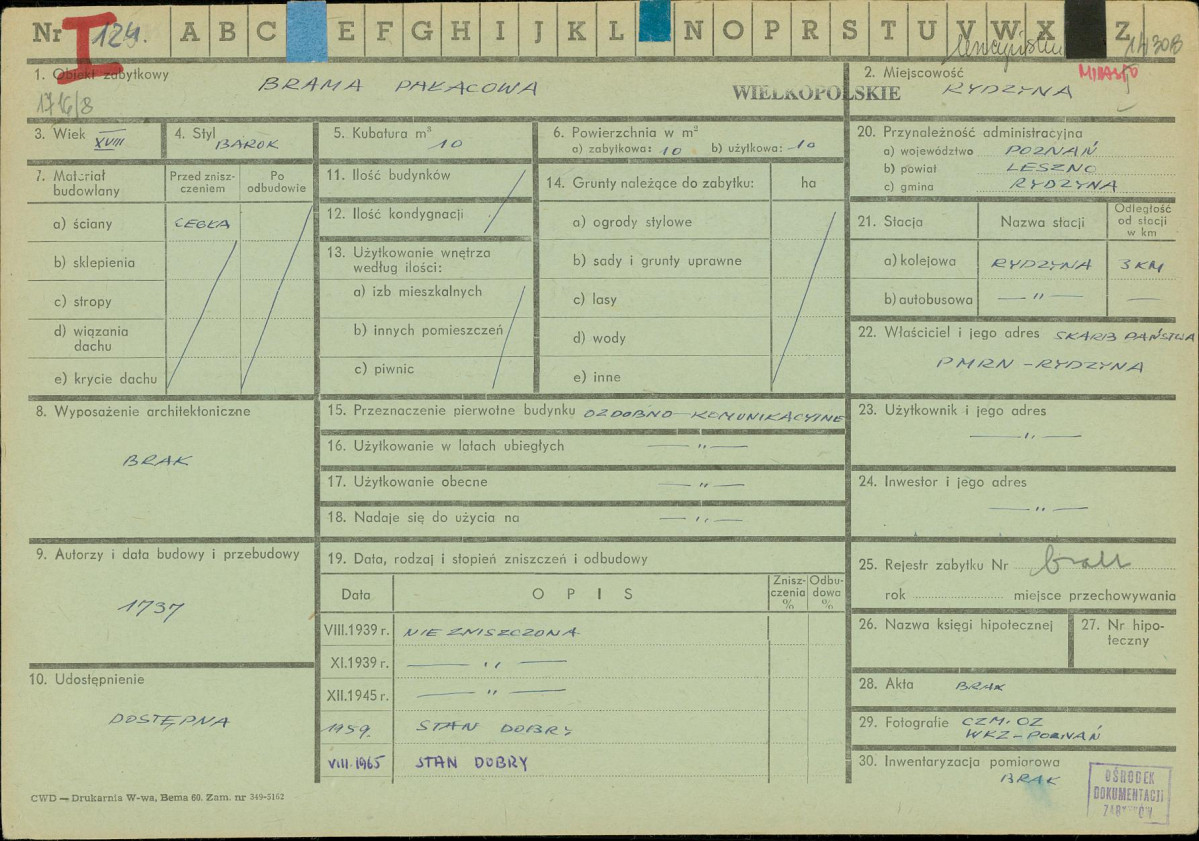 Nr I 124. A B C E F G H I J K L N O P R S T U V W X Z
1. Obiekt zabytkowy BRAMA PAŁACOWA
WIELKOPOLSKIE
2. Miejscowość RYDZYNA
MIASTO
3. Wiek XVIII
4. Styl BAROK
5. Kubatura m³ 10
6. Powierzchnia w m²
a) zabytkowa: 10 b) użytkowa: 10
20. Przynależność administracyjna
a) województwo POZNAŃ
b) powiat LESZNO
c) gmina RYDZYNA
7. Materiał budowlany
Przed zniszczeniem
Po odbudowie
a) ściany CEGŁA
b) sklepienia
c) stropy
d) wiązania dachu
e) krycie dachu
11. Ilość budynków
12. Ilość kondygnacji
13. Użytkowanie wnętrza
według ilości:
a) izb mieszkalnych
b) innych pomieszczeń
c) piwnic
14. Grunty należące do zabytku: ha
a) ogrody stylowe
b) sady i grunty uprawne
c) lasy
d) wody
e) inne
21. Stacja Nazwa stacji Odległość od stacji w km
a) kolejowa RYDZYNA 3 KM
b) autobusowa — " — —
22. Właściciel i jego adres SKARB PAŃSTWA
PMRN - RYDZYNA
8. Wyposażenie architektoniczne
BRAK
15. Przeznaczenie pierwotne budynku OZDOBNO-KOMUNIKACYJNE
16. Użytkowanie w latach ubiegłych — " —
17. Użytkowanie obecne — " —
18. Nadaje się do użycia na — " —
23. Użytkownik i jego adres
— " —
24. Inwestor i jego adres
— " —
9. Autorzy i data budowy i przebudowy
1737
19. Data, rodzaj i stopień zniszczeń i odbudowy
Data OPIS Zniszczenia % Odbudowa %
VIII.1939 r. NIE ZNISZCZONA
XI.1939 r. — " —
XII.1945 r. — " —
1959. STAN DOBRY
VIII.1965 STAN DOBRY
25. Rejestr zabytku Nr brak
rok miejsce przechowywania
26. Nazwa księgi hipotecznej
27. Nr hipoteczny
10. Udostępnienie
DOSTĘPNA
28. Akta BRAK
29. Fotografie CZM. OZ
WKZ - POZNAŃ
30. Inwentaryzacja pomiarowa
BRAK
OŚRODEK
DOKUMENTACJI
ZABYTKÓW
CWD — Drukarnia W-wa, Bema 60. Zam. nr 349-5162